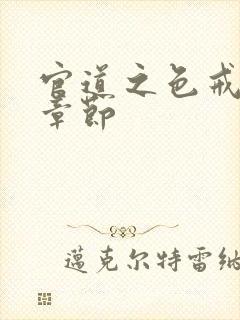 官道之色戒
章節
邁克尔特雷纳